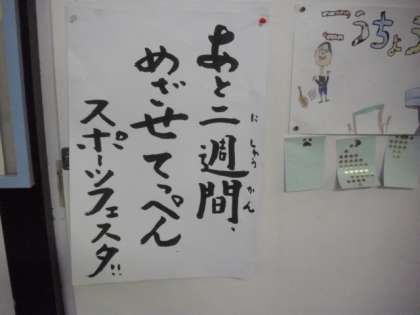 あと二週間、
にしゅうかん
めざせてっぺん
スポーツフェスタ!!
こうちょう